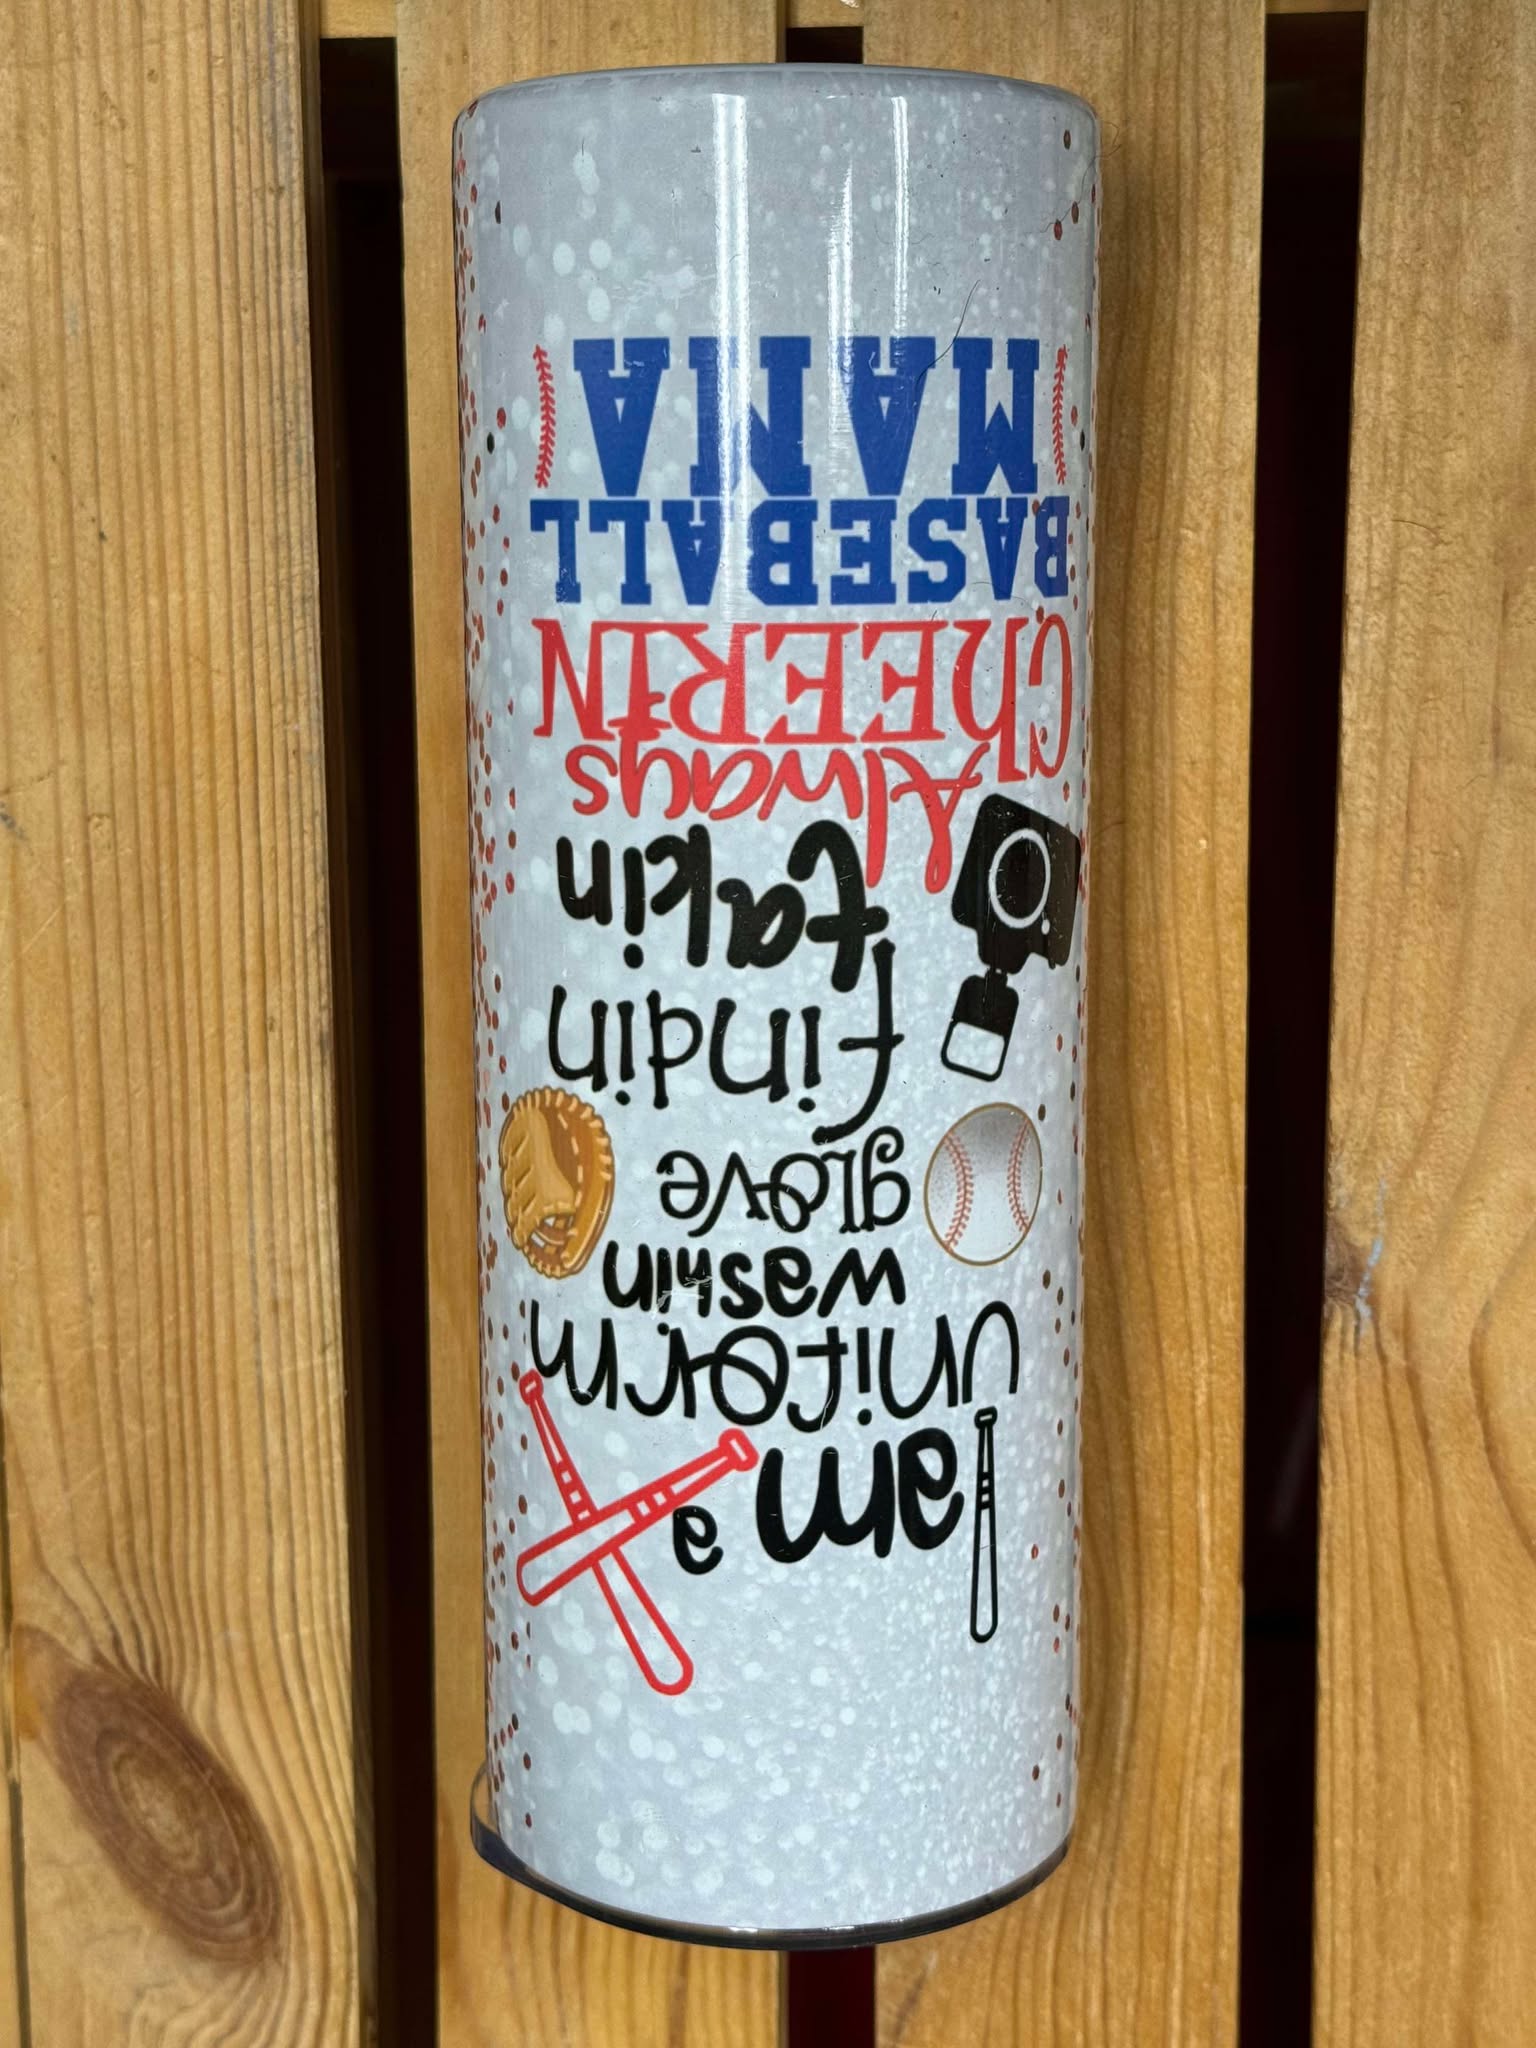 I am a
uniform
washin
glove
findin
takin
Always
CHEERIN
BASEBALL
MAMA